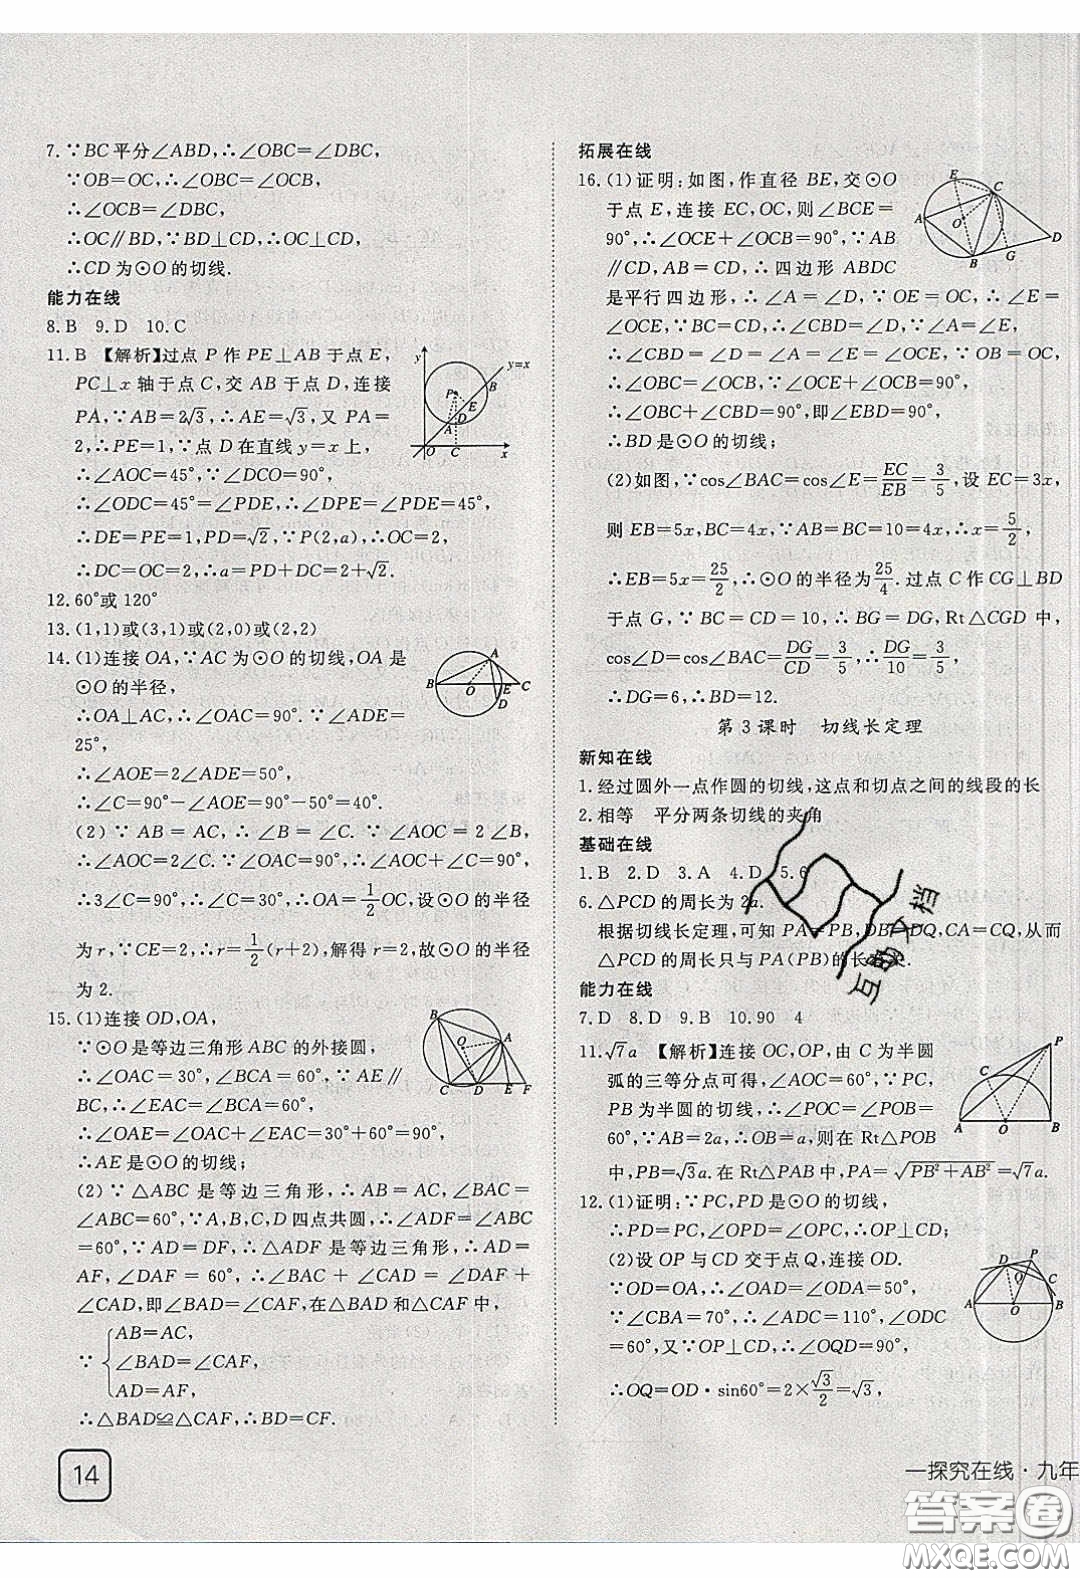 7.∵BC平分∠ABD,∴∠OBC=∠DBC,
∵OB=OC,∴∠OBC=∠OCB,
∴∠OCB=∠DBC,
∴OC∥BD,∵BD⊥CD,∴OC⊥CD,
∴CD为⊙O的切线.
能力在线
8.B 9.D 10.C
11.B 【解析】过点P作PE⊥AB于点E,
PC⊥x轴于点C,交AB于点D,连接
PA,∵AB=2√3,∴AE=√3,又PA=
2,∴PE=1,∵点D在直线y=x上,
∴∠AOC=45°,∵∠DCO=90°,
∴∠ODC=45°=∠PDE,∴∠DPE=∠PDE=45°,
∴DE=PE=1,PD=√2,∵P(2,a),∴OC=2,
∴DC=OC=2,∴a=PD+DC=2+√2.
12.60°或120°
13.(1,1)或(3,1)或(2,0)或(2,2)
14.(1)连接OA,∵AC为⊙O的切线,OA是
⊙O的半径,
∴OA⊥AC,∴∠OAC=90°.∵∠ADE=
25°,
∴∠AOE=2∠ADE=50°,
∴∠C=90°-∠AOE=90°-50°=40°.
(2)∵AB=AC,∴∠B=∠C.∵∠AOC=2∠B,
∴∠AOC=2∠C.∵∠OAC=90°,∴∠AOC+∠C=90°,
∴3∠C=90°,∴∠C=30°,∴OA=1/2OC,设⊙O的半径
为r,∵CE=2,∴r=1/2(r+2),解得r=2,故⊙O的半径
为2.
15.(1)连接OD,OA,
∵⊙O是等边三角形ABC的外接圆,
∴∠OAC=30°,∠BCA=60°.∵AE∥
BC,∴∠EAC=∠BCA=60°,
∴∠OAE=∠OAC+∠EAC=30°+60°=90°,
∴AE是⊙O的切线;
(2)∵△ABC是等边三角形,∴AB=AC,∠BAC=
∠ABC=60°,∵A,B,C,D四点共圆,∴∠ADF=∠ABC
=60°,∵AD=DF,∴△ADF是等边三角形,∴AD=
AF,∠DAF=60°,∴∠BAC+∠CAD=∠DAF+
∠CAD,即∠BAD=∠CAF,在△BAD和△CAF中,
AB=AC,
∵{∠BAD=∠CAF,
AD=AF,
∴△BAD≌△CAF,∴BD=CF.
14
拓展在线
16.(1)证明:如图,作直径BE,交⊙O
于点E,连接EC,OC,则∠BCE=
90°,∴∠OCE+∠OCB=90°,∵AB
∥CD,AB=CD,∴四边形ABDC
是平行四边形,∴∠A=∠D,∵OE=OC,∴∠E=
∠OCE,∵BC=CD,∴∠CBD=∠D,∵∠A=∠E,
∴∠CBD=∠D=∠A=∠OCE,∵OB=OC,
∴∠OBC=∠OCB,∵∠OCE+∠OCB=90°,
∴∠OBC+∠CBD=90°,即∠EBD=90°,
∴BD是⊙O的切线.
(2)如图,∵cos∠BAC=cos∠E=EC/EB=3/5,设EC=3x,
则EB=5x,BC=4x,∵AB=BC=10=4x,∴x=5/2,
∴EB=5x=25/2,∴⊙O的半径为25/4.过点C作CG⊥BD
于点G,∵BC=CD=10,∴BG=DG,Rt△CGD中,
cos∠D=cos∠BAC=DG/CD=3/5,∴DG/10=3/5,
∴DG=6,∴BD=12.
第3课时 切线长定理
新知在线
1.经过圆外一点作圆的切线,这点和切点之间的线段的长
2.相等 平分两条切线的夹角
基础在线
1.B 2.D 3.A 4.D 5.6
6.△PCD的周长为2a.
根据切线长定理,可知PA=PB,DB=DQ,CA=CQ,从而
△PCD的周长只与PA(PB)的长有关.
能力在线
7.D 8.D 9.B 10.90 4
11.√7a 【解析】连接OC,OP,由C为半圆
弧的三等分点可得,∠AOC=60°,∵PC,
PB为半圆的切线,∴∠POC=∠POB=
60°,∵AB=2a,∴OB=a,则在Rt△POB
中,PB=√3a.在Rt△PAB中,PA=√(PB²+AB²)=√7a.
12.(1)证明:∵PC,PD是⊙O的切线,
∴PD=PC,∠OPD=∠OPC,∴OP⊥CD;
(2)设OP与CD交于点Q,连接OD.
∵OD=OA,∴∠OAD=∠ODA=50°.
∵∠CBA=70°,∴∠ADC=110°,∠ODC
=60°,又∵OP⊥CD,∴∠OQD=90°,
∴OQ=OD·sin60°=2×√3/2=√3.
一探究在线·九年
互助文档
答案圈
MXQE.COM